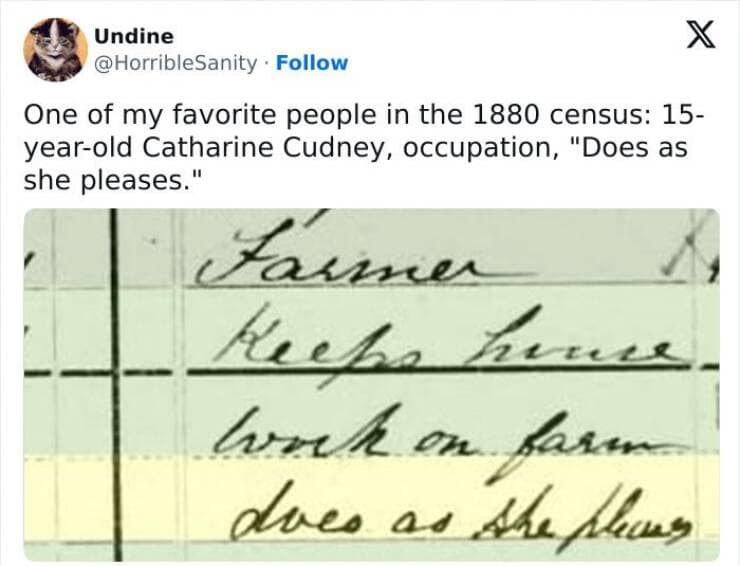 Undine
@HorribleSanity · Follow
X
One of my favorite people in the 1880 census: 15-
year-old Catharine Cudney, occupation, "Does as
she pleases."
Farmer
Keeps house
work on farm
does as she pleases